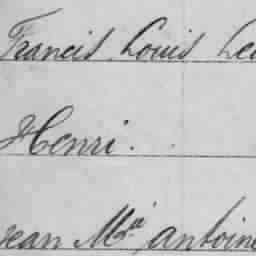 Francis Louis Leo
Henri.
Jean Mie Antoine